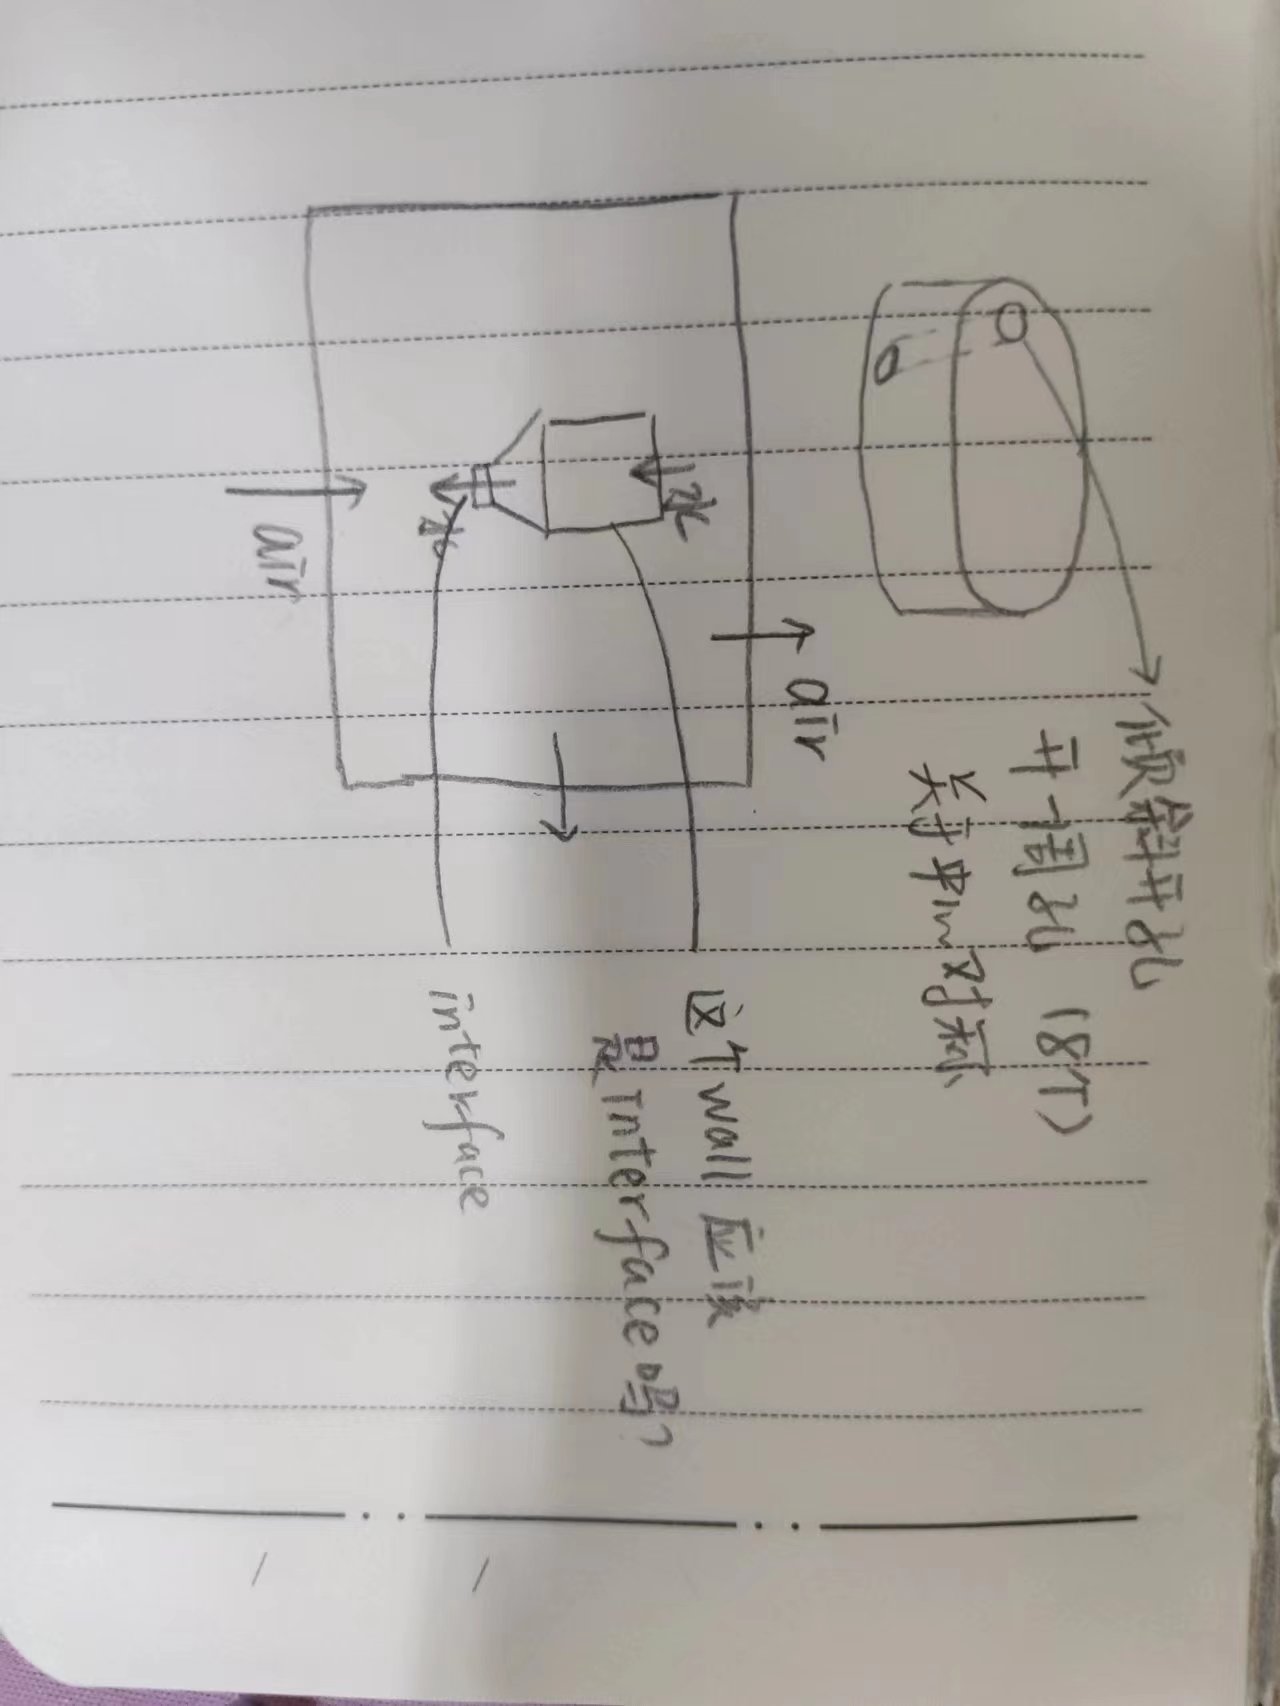 倾斜开孔
开一圈孔 (8个)
关于中心对称
air
水
水
air
这个wall应该
是Interface吗?
interface